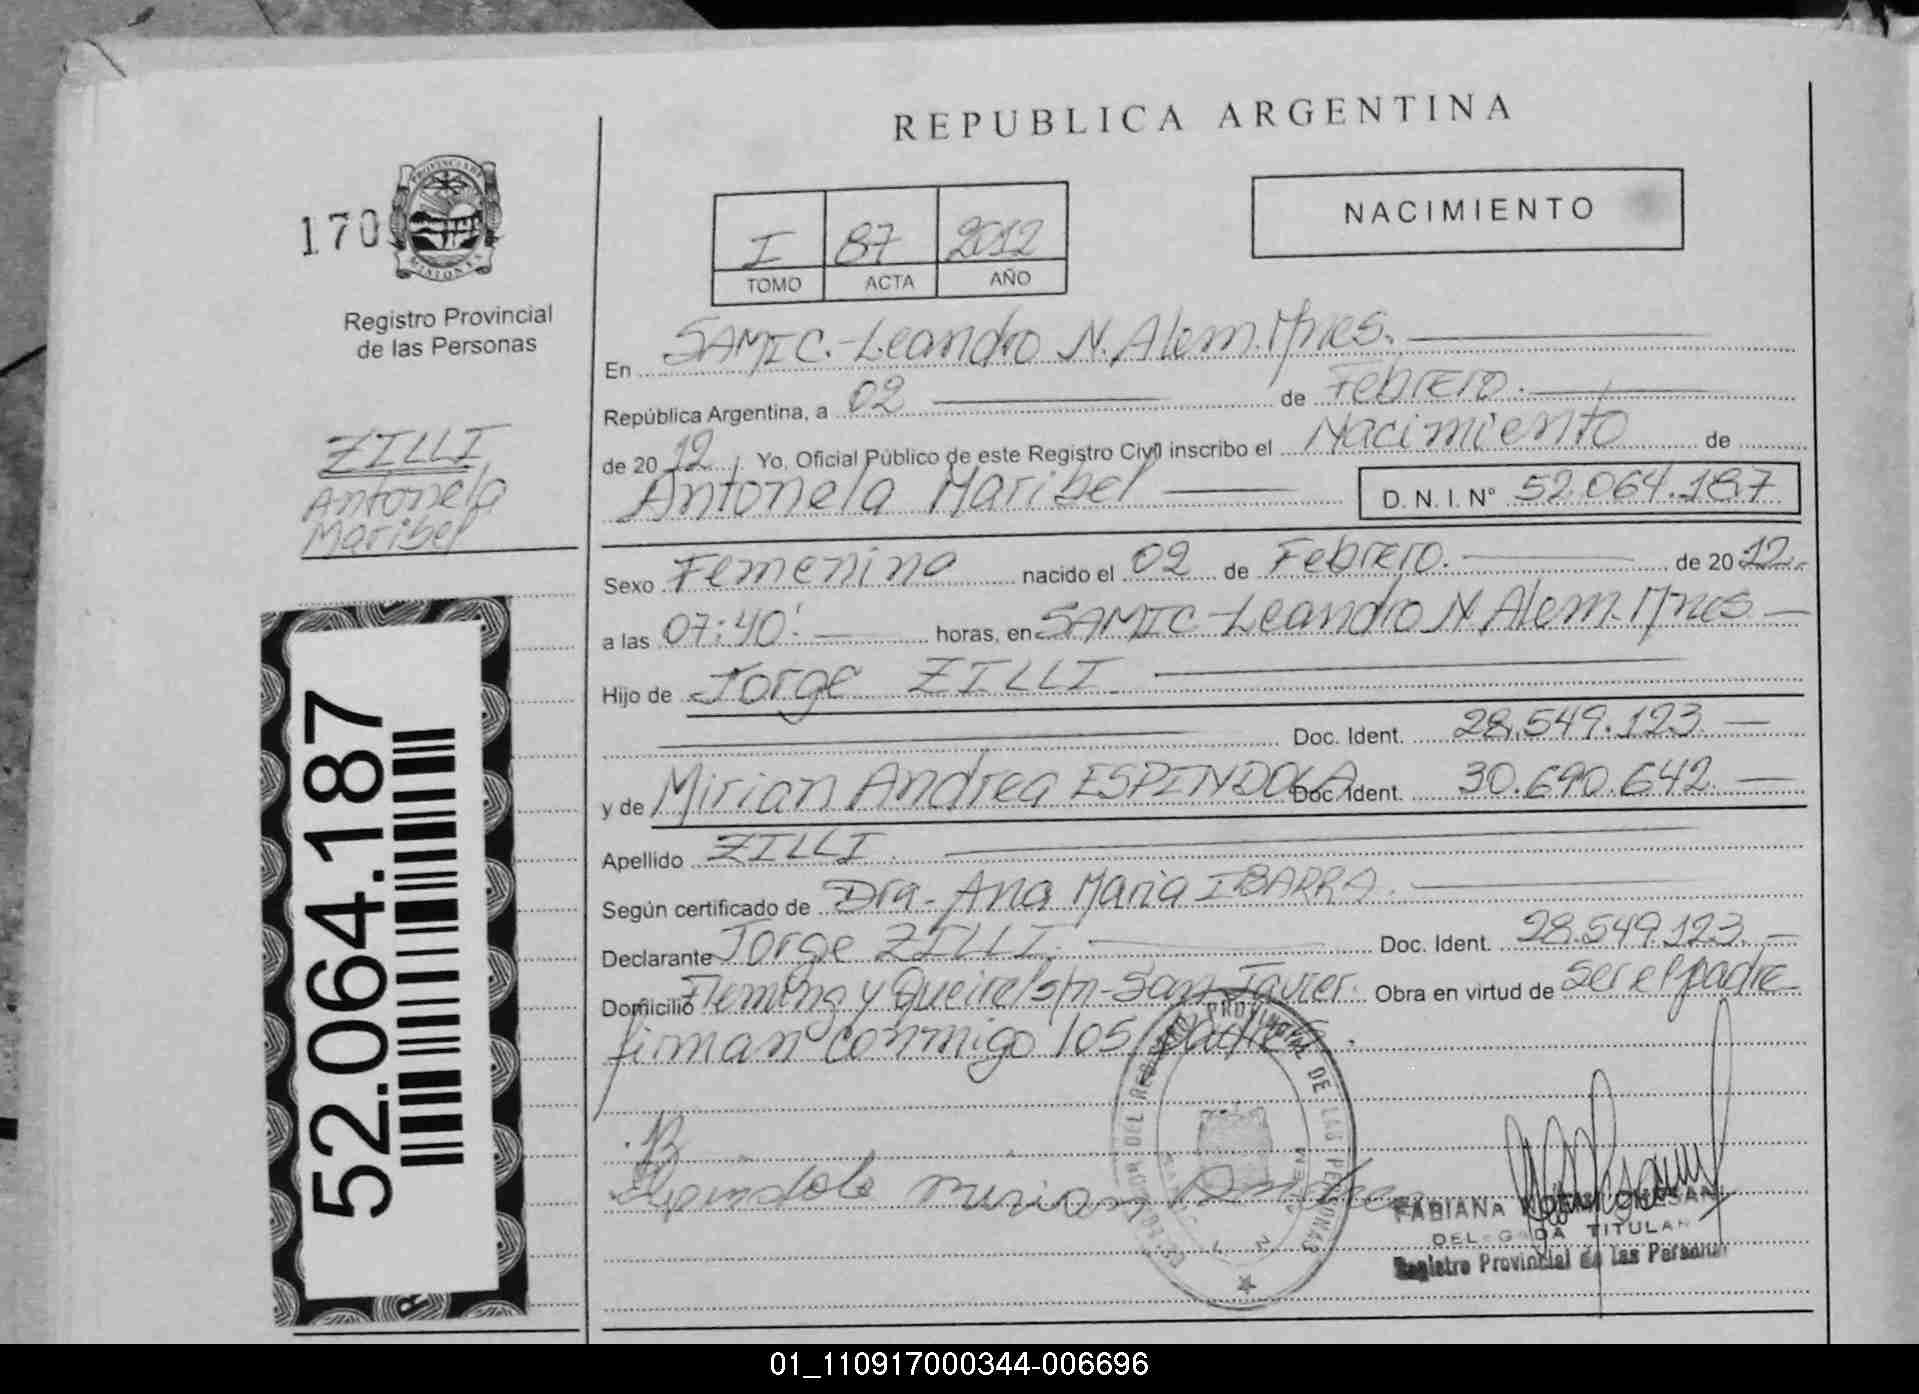 REPUBLICA ARGENTINA
170
PROVINCIA DE
MISIONES
Registro Provincial
de las Personas
I 87 2012
TOMO ACTA AÑO
NACIMIENTO
ZILLI
Antonela
Maribel
52.064.187
En SAMIC.-Leandro N. Alem. Mnes.
República Argentina, a 02 de Febrero.
de 2012. Yo, Oficial Público de este Registro Civil inscribo el Nacimiento de
Antonela Maribel D. N. I. Nº 52.064.187
Sexo Femenino nacido el 02 de Febrero. de 2012.
a las 07:40' horas, en SAMIC-Leandro N Alem. Mnes
Hijo de Jorge ZILLI
Doc. Ident. 28.549.123.
y de Mirian Andrea ESPINDOLA Doc. Ident. 30.690.642.
Apellido ZILLI
Según certificado de Dra. Ana Maria IBARRA.
Declarante Jorge ZILLI. Doc. Ident. 28.549.123.
Domicilio Fleming y Queirel s/n-San Javier. Obra en virtud de ser el padre
firman conmigo los padres.
Espindola mirian Andrea
PROVINCIAL DE LAS PERSONAS
FABIANA
DELEGADA TITULAR
Registro Provincial de Las Personas
01_110917000344-006696